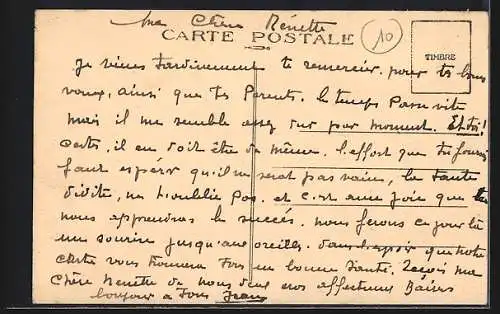 Ma Chère Nénette
10
CARTE POSTALE
TIMBRE
Je viens tardivement te remercier pour tes bons
voeux, ainsi que tes Parents. le temps Passe vite
mais il me semble assez dur par moment. Et toi!
certes, il en doit être de même. l'effort que tu fournis
faut espérer qu'il ne serat pas vain, la Tante
ne l'oublie pas. et c'est avec joie que
nous apprendrons le succès. nous ferons ce jour là
un sourire jusqu'aux oreilles. dans l'espoir que notre
carte vous trouvera tous en bonne Santé. Reçois ma
Chère Nénette de nous deux nos affectueux Baisers
bonjour à Tous Jean